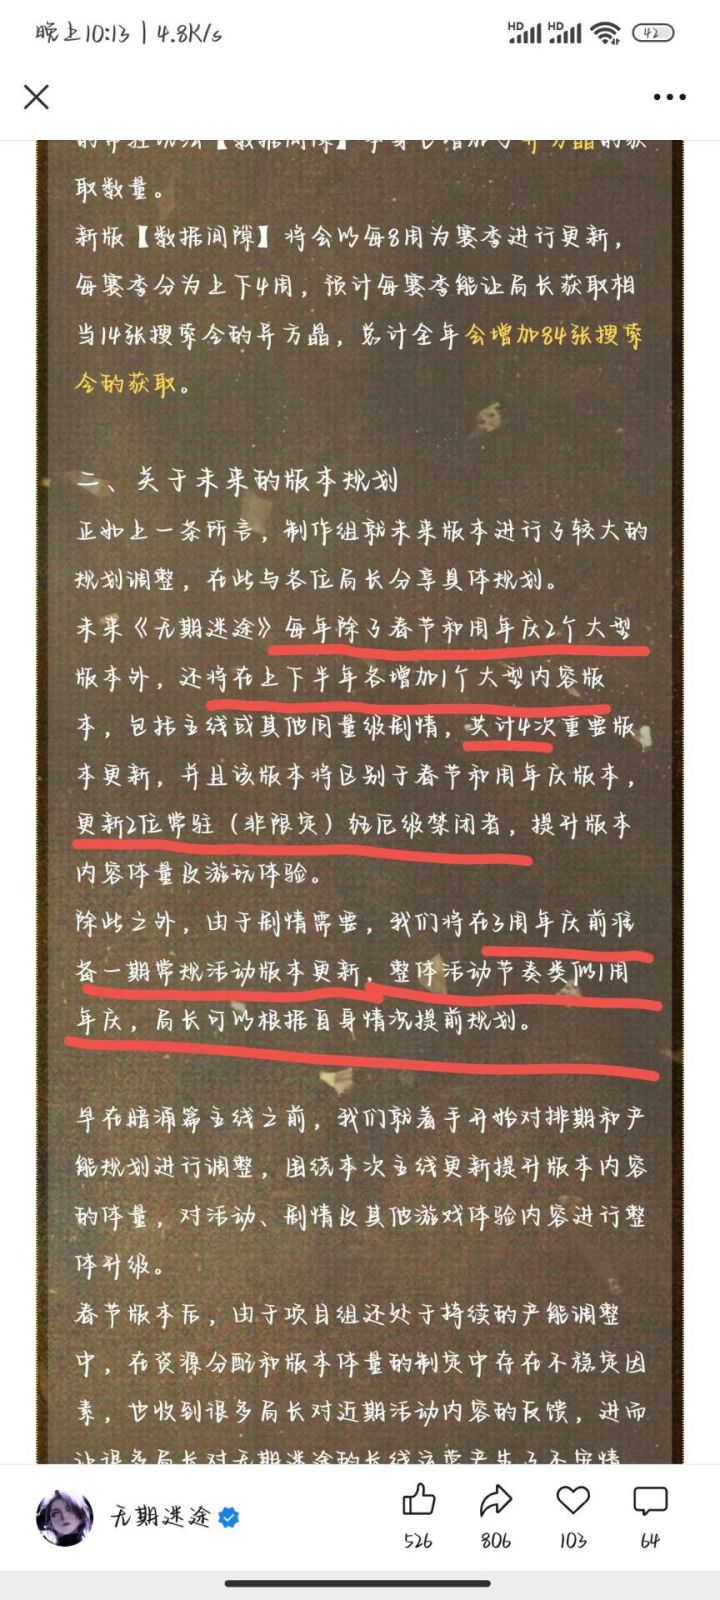 晚上10:13 | 4.8K/s
HD HD 42
的常驻玩法【数据间隙】本身也增加了异方晶的获
取数量。
新版【数据间隙】将会以每8周为赛季进行更新，
每赛季分为上下4周，预计每赛季能让局长获取相
当14张搜索令的异方晶，总计全年会增加84张搜索
令的获取。
二、关于未来的版本规划
正如上一条所言，制作组就未来版本进行了较大的
规划调整，在此与各位局长分享具体规划。
未来《无期迷途》每年除了春节和周年庆2个大型
版本外，还将在上下半年各增加1个大型内容版
本，包括主线或其他同量级剧情，共计4次重要版
本更新，并且该版本将区别于春节和周年庆版本，
更新2位常驻（非限定）狂厄级禁闭者，提升版本
内容体量及游玩体验。
除此之外，由于剧情需要，我们将在3周年庆前准
备一期常规活动版本更新，整体活动节奏类似1周
年庆，局长可以根据自身情况提前规划。
早在暗涌篇主线之前，我们就着手开始对排期和产
能规划进行调整，围绕本次主线更新提升版本内容
的体量，对活动、剧情及其他游戏体验内容进行整
体升级。
春节版本后，由于项目组还处于持续的产能调整
中，在资源分配和版本体量的制定中存在不稳定因
素，也收到很多局长对近期活动内容的反馈，进而
让很多局长对无期迷途的长线运营产生了不安情
无期迷途
526 806 103 64